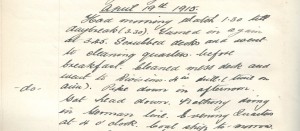 April 19th 1915.
Had morning watch 1.30 till
daybreak (3.30). Turned in again
till 5.45. Scrubbed decks and went
to cleaning quarters before
breakfast. Cleaned mess deck and
went to Division. 4 in. drill (
-do- ain). Pipe down in afternoon.
Got head down. Nothing doing
in German line. Evening Quarters
at 4 o'clock.